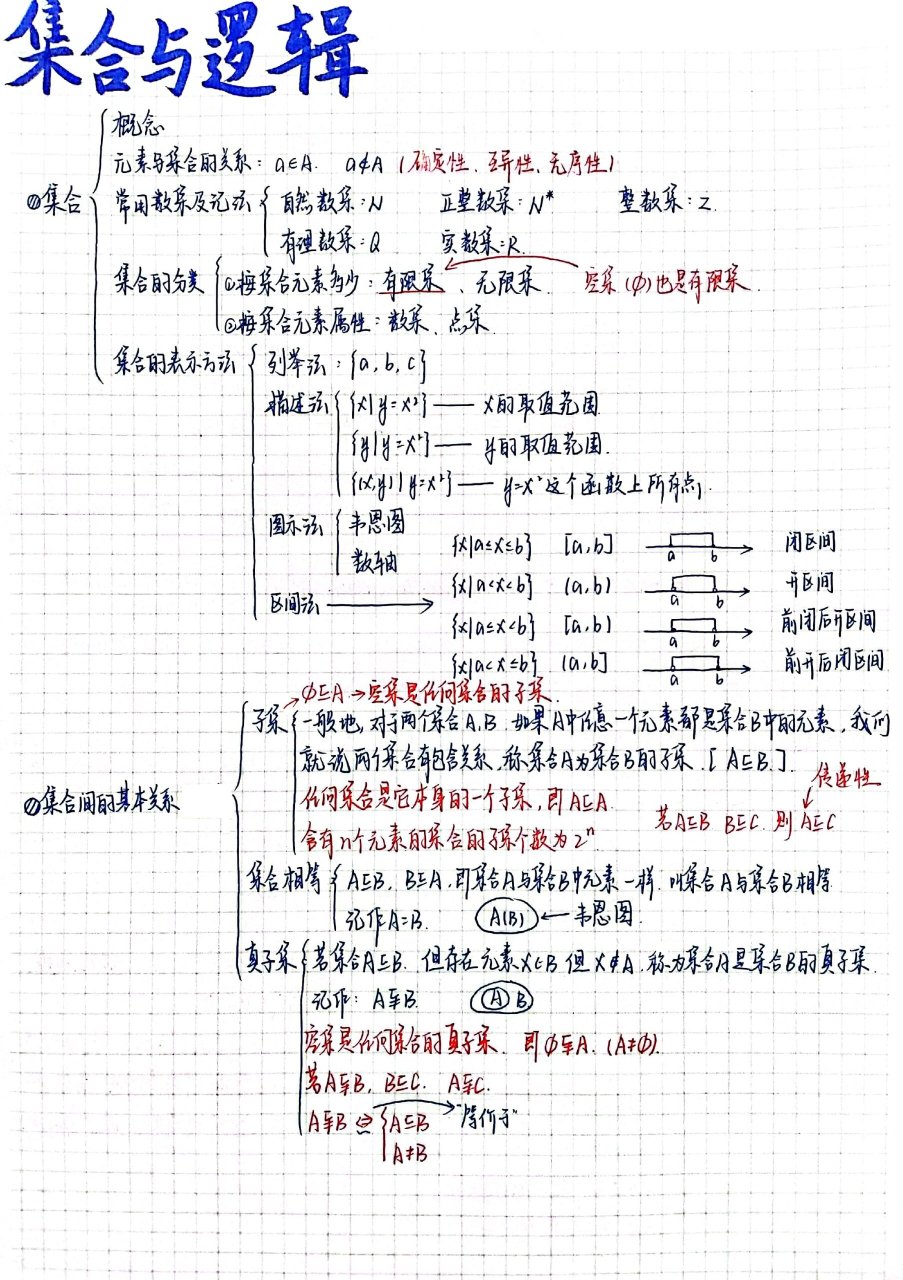 集合与逻辑
概念
元素与集合的关系：a∈A. a∉A（确定性、互异性、无序性）
①集合
常用数集及记法 自然数集：N 正整数集：N* 整数集：Z
有理数集：Q 实数集：R.
集合的分类 ①按集合元素多少：有限集、无限集. 空集（∅）也是有限集.
②按集合元素属性：数集、点集
集合的表示方法 列举法：{a, b, c}
描述法 {x|y=x²}——x的取值范围
{y|y=x²}——y的取值范围.
{(x,y)|y=x²}——y=x²这个函数上所有点.
图示法 韦恩图
数轴
{x|a≤x≤b} [a,b] a b 闭区间
区间法 {x|a<x<b} (a,b) a b 开区间
{x|a≤x<b} [a,b) a b 前闭后开区间
{x|a<x≤b} (a,b] a b 前开后闭区间
∅⊆A→空集是任何集合的子集.
子集 一般地，对于两个集合A,B.如果A中任意一个元素都是集合B中的元素，我们
就说两个集合有包含关系，称集合A为集合B的子集.[A⊆B.]
传递性
②集合间的基本关系
任何集合是它本身的一个子集，即A⊆A.
若A⊆B B⊆C.则A⊆C
含有n个元素的集合的子集个数为2ⁿ
集合相等 A⊆B，B⊆A，即集合A与集合B中元素一样.叫集合A与集合B相等
记作A=B. A(B) ←韦恩图.
真子集 若集合A⊆B.但存在元素x∈B但x∉A.称为集合A是集合B的真子集.
记作：A⫋B. A B
空集是任何集合的真子集.即∅⫋A.(A≠∅).
若A⫋B，B⊆C. A⫋C.
A⫋B⇔ A⊆B "等价于"
A≠B